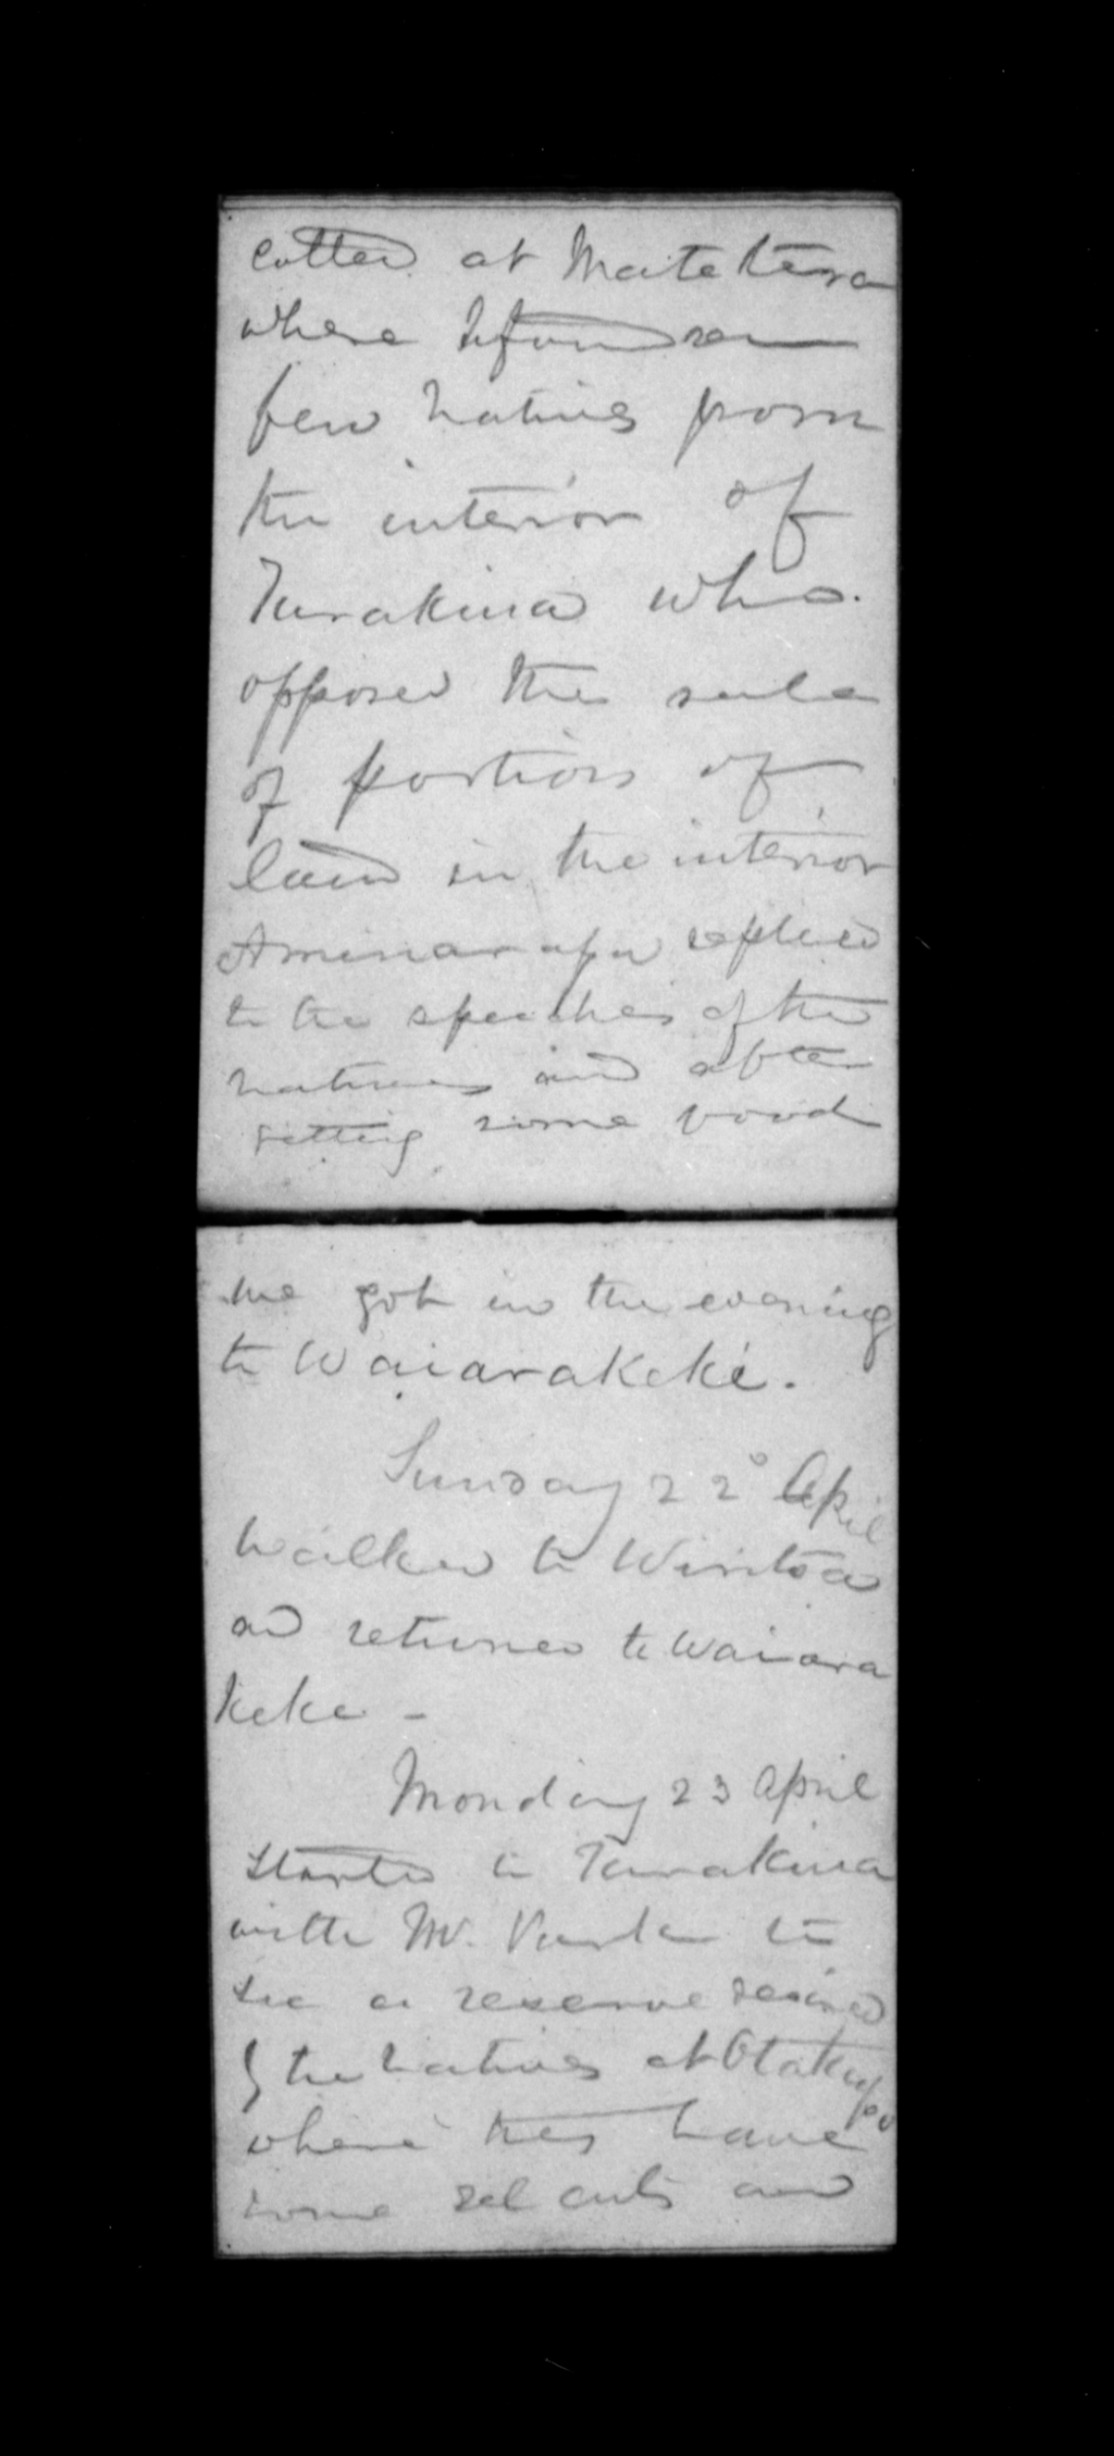 called at Matatera
where I found a
few natives from
the interior of
Turakina who
opposed the sale
of portions of
land in the interior
replied
to the speeches of the
natives and after
getting some food
we got in the evening
to Waiarakeke.
Sunday 22° April
Walked to Wiritoa
and returned to Waiara
keke -
Monday 23 April
started to Turakina
with Mr. Park to
see a reserve
by the natives at Otakupo
where they have
some eel cuts and